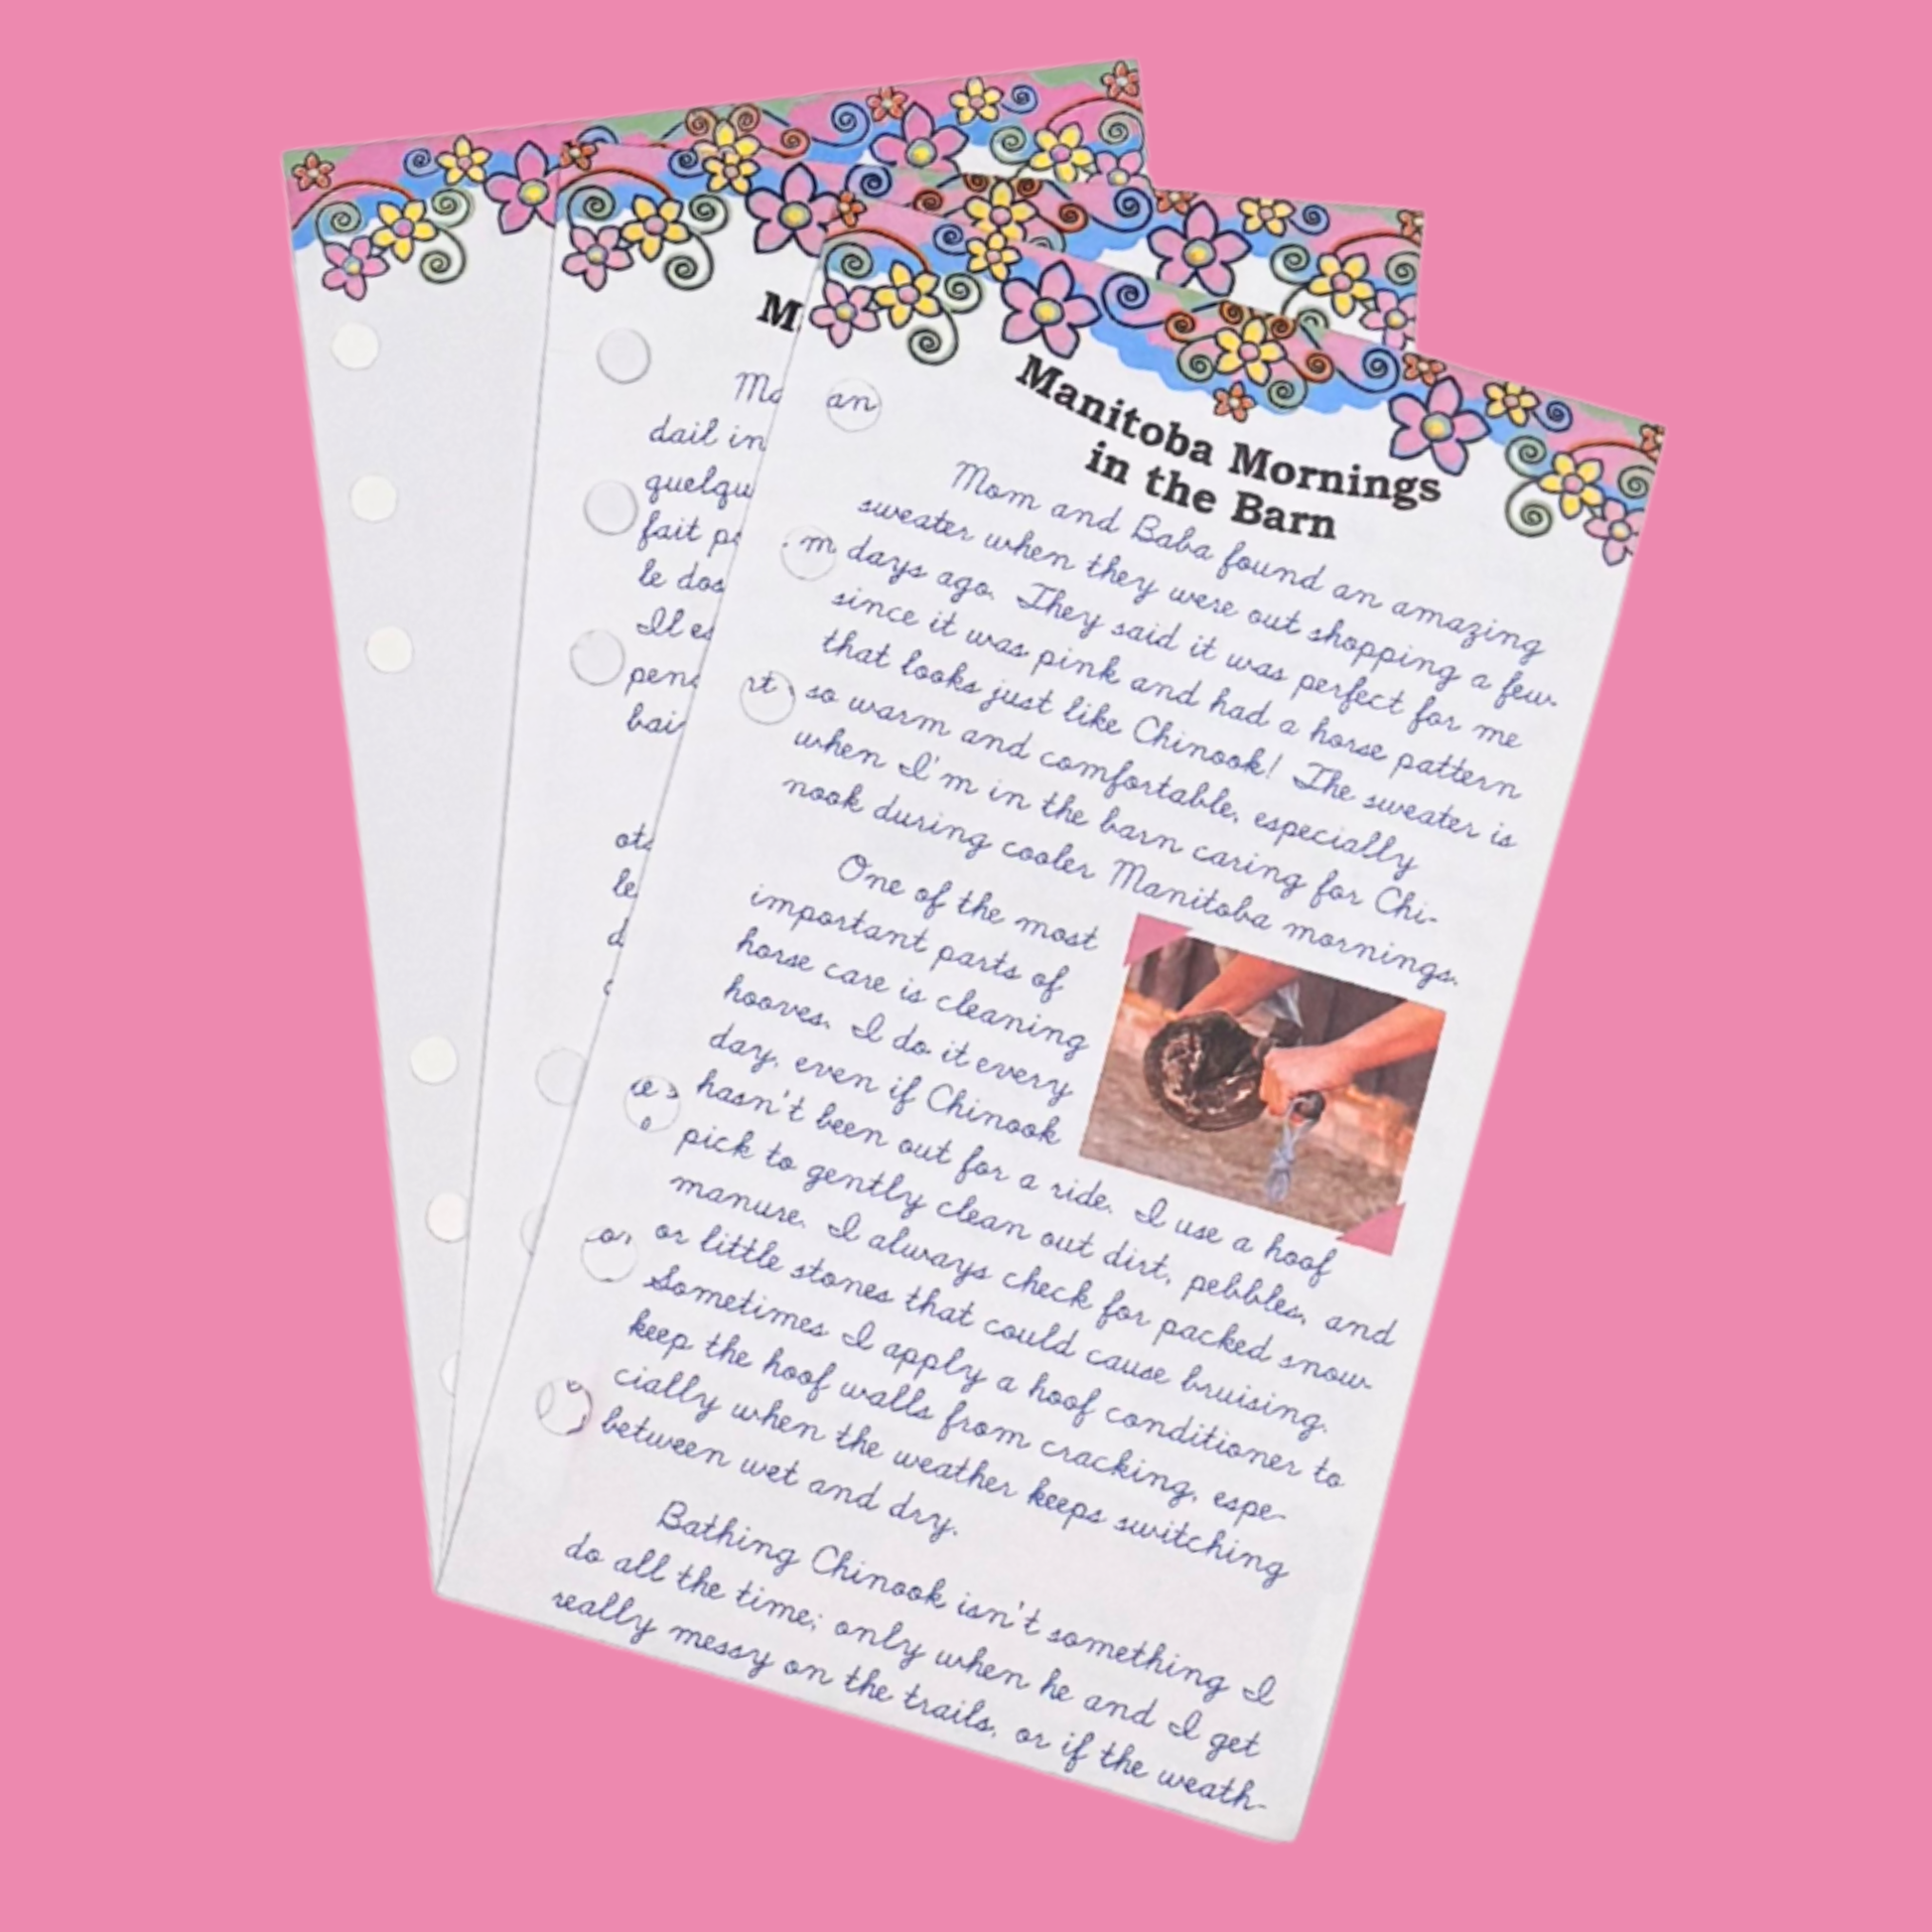 Manitoba Mornings
in the Barn
Mom and Baba found an amazing
sweater when they were out shopping a few
days ago. They said it was perfect for me
since it was pink and had a horse pattern
that looks just like Chinook! The sweater is
so warm and comfortable, especially
when I'm in the barn caring for Chi-
nook during cooler Manitoba mornings.
One of the most
important parts of
horse care is cleaning
hooves. I do it every
day, even if Chinook
hasn't been out for a ride. I use a hoof
pick to gently clean out dirt, pebbles, and
manure. I always check for packed snow
or little stones that could cause bruising.
Sometimes I apply a hoof conditioner to
keep the hoof walls from cracking, espe-
cially when the weather keeps switching
between wet and dry.
Bathing Chinook isn't something I
do all the time; only when he and I get
really messy on the trails, or if the weath-
an
m
rt
M
dail in
quelqu
fait p
le dos
Il es
pen
bai
ots
le
d